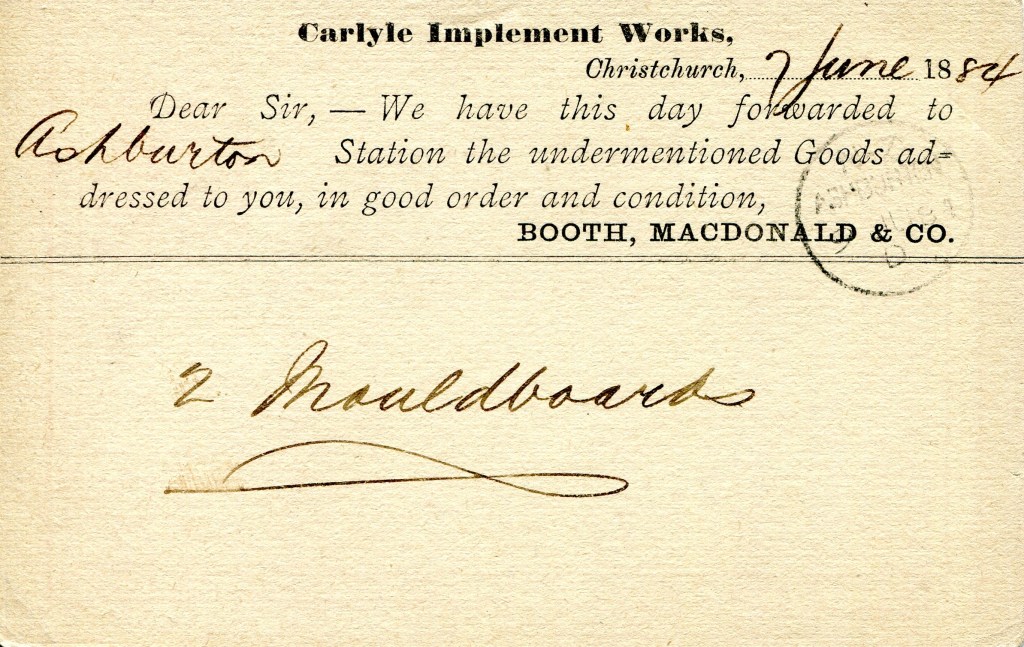 Carlyle Implement Works,
Christchurch, 7 June 1884
Dear Sir, — We have this day forwarded to
Ashburton Station the undermentioned Goods ad=
dressed to you, in good order and condition,
BOOTH, MACDONALD & CO.
ASHBURTON
2 Mouldboards